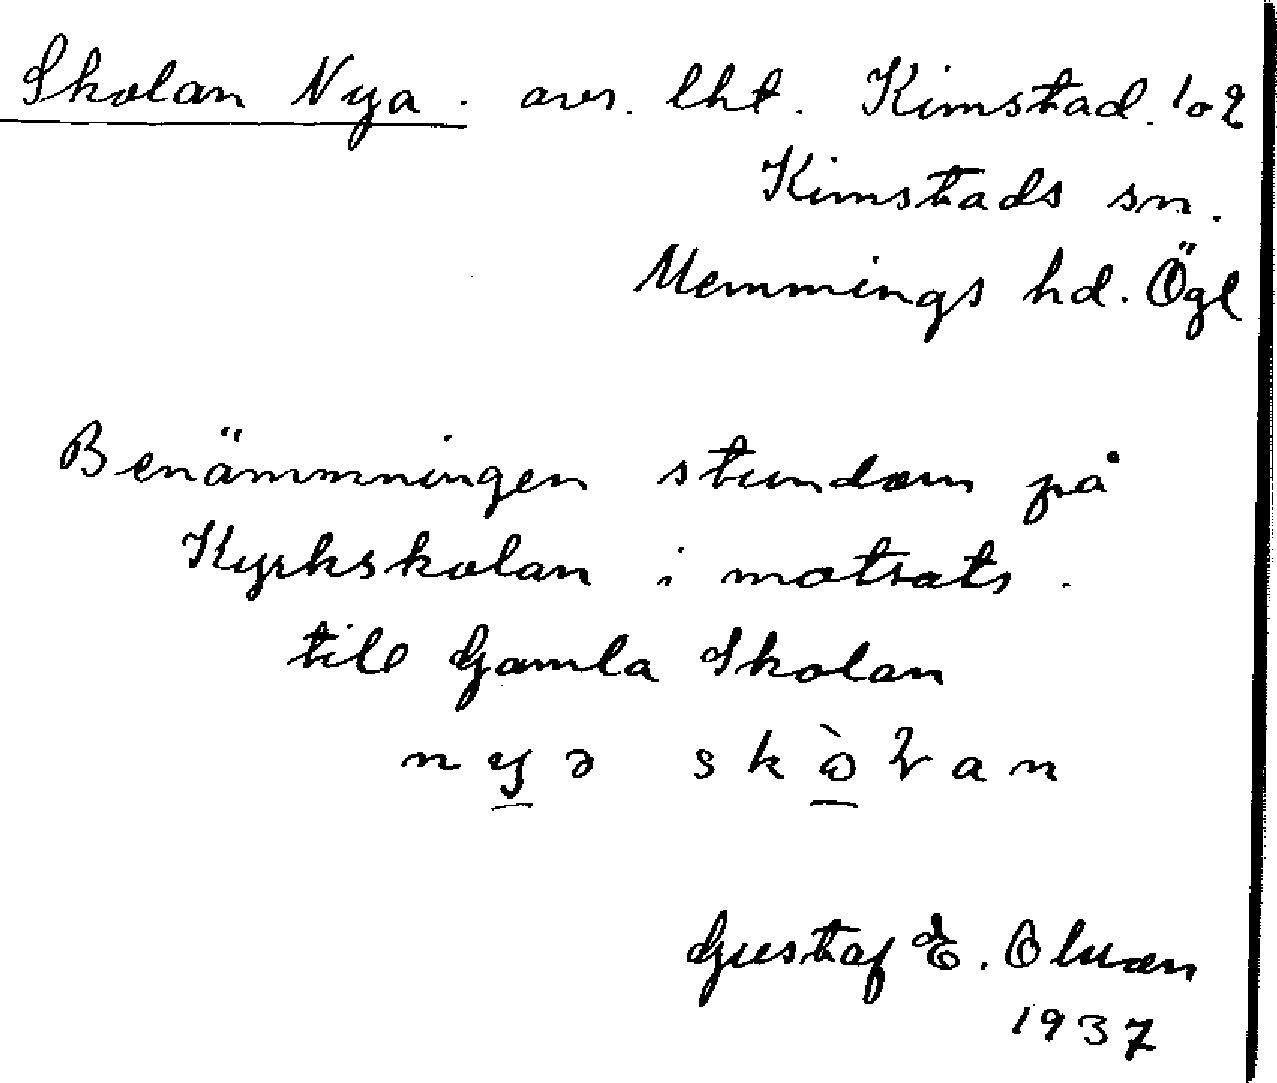 Skolan Nya. avs. lht. Kimstad. 1 o 2
Kimstads sn.
Memmings hd. Ögl
Benämningen stundom på
Kyrkskolan i motsats.
till Gamla Skolan
nyə skòɽan
Gustaf E.
1937